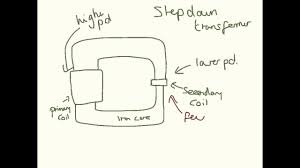 Step down
transformer
higher
pd
lower pd.
primary
coil
secondary
coil
iron core
few